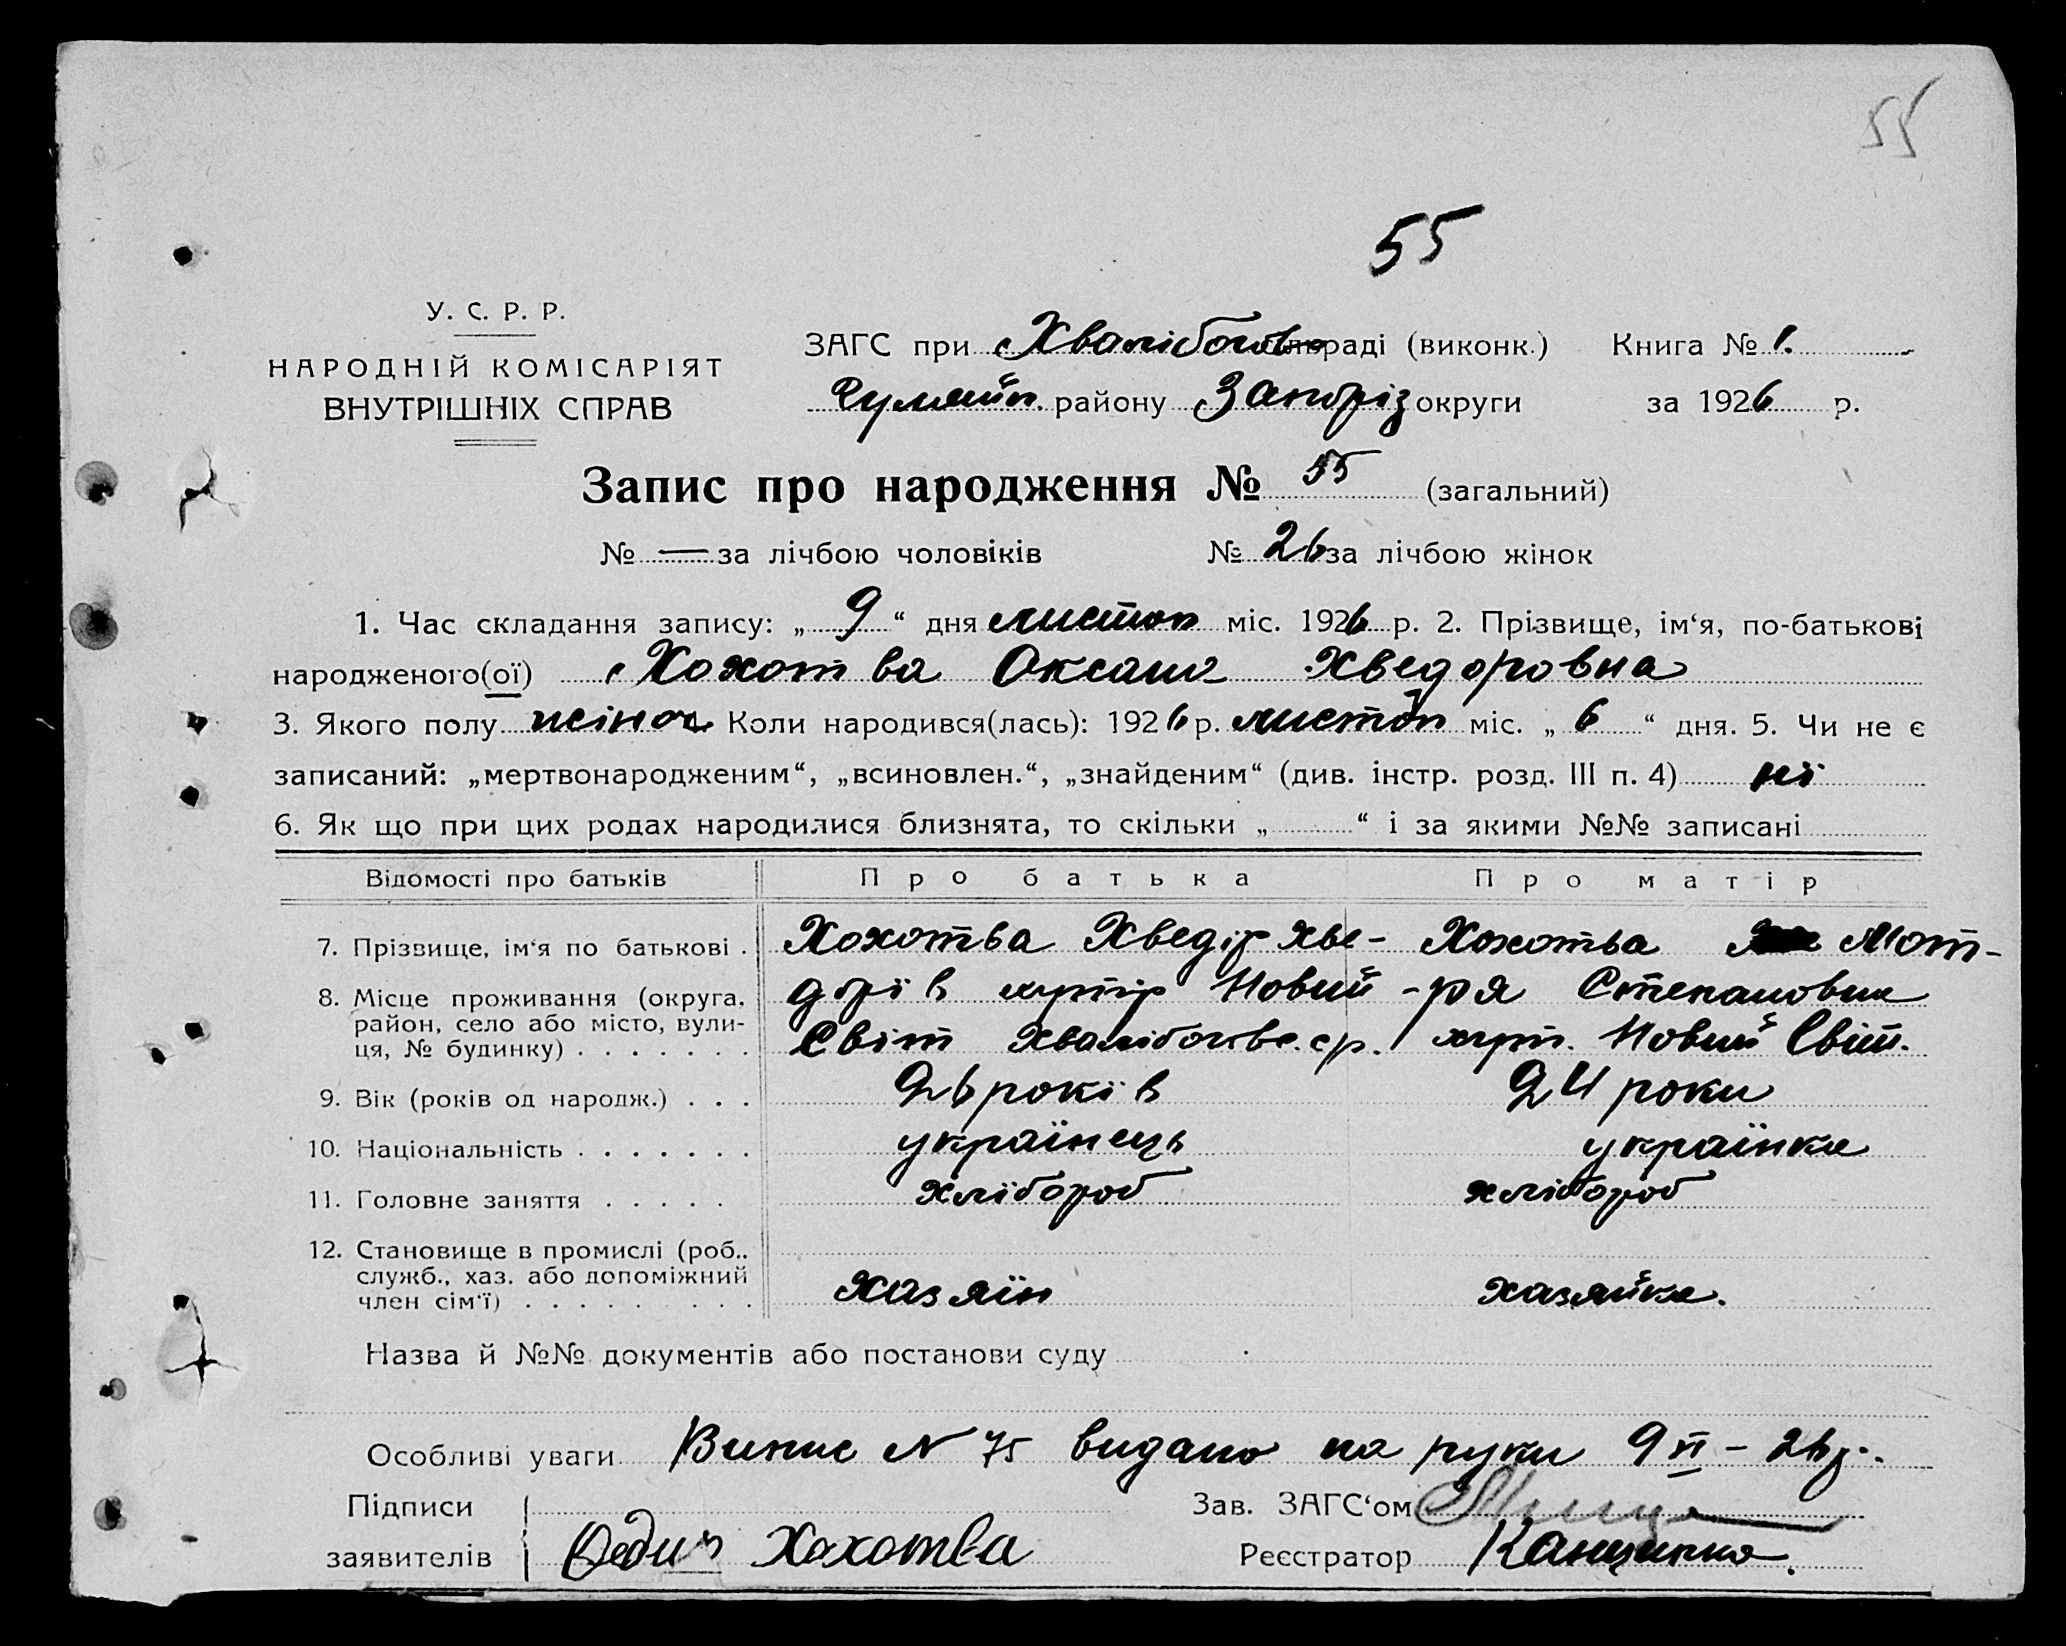 55
55
У. С. Р. Р.
НАРОДНІЙ КОМІСАРІЯТ
ВНУТРІШНІХ СПРАВ
ЗАГС при Хвалібогів сільраді (виконк.) Книга № 1.
району Запоріз округи за 1926 р.
Запис про народження № 55 (загальний)
№ — за лічбою чоловіків № 26 за лічбою жінок
1. Час складання запису: „ 9 “ дня листоп міс. 1926 р. 2. Прізвище, ім‘я, по-батькові
народженого(ої) Хохотва Оксана Хведоровна
3. Якого полу жіноч. Коли народився(лась): 1926 р. листоп міс. „ 6 “ дня. 5. Чи не є
записаний: „мертвонародженим“, „всиновлен.“, „знайденим“ (див. інстр. розд. III п. 4) ні
6. Як що при цих родах народилися близнята, то скільки „ “ і за якими №№ записані
Відомості про батьків Про батька Про матір
7. Прізвище, ім‘я по батькові . Хохотва Хведір Хве- Хохотва Мот-
8. Місце проживання (округа, дорів хутір Новий -ря Степановна
район, село або місто, вули- Світ Хвалібогівс. ср. хут. Новий Світ.
ця, № будинку) . . . . . . .
9. Вік (років од народж.) . . . 26 років 24 роки
10. Національність . . . . . . . українець українка
11. Головне заняття . . . . . хлібороб хлібороб
12. Становище в промислі (роб.,
служб., хаз. або допоміжний
член сім‘ї) . . . . . . . . . хазяїн хазяйка.
Назва й №№ документів або постанови суду
Особливі уваги Випис N 75 видано на руки 9 XI – 26 р.
Підписи Зав. ЗАГС‘ом
заявителів Хохотва Реєстратор